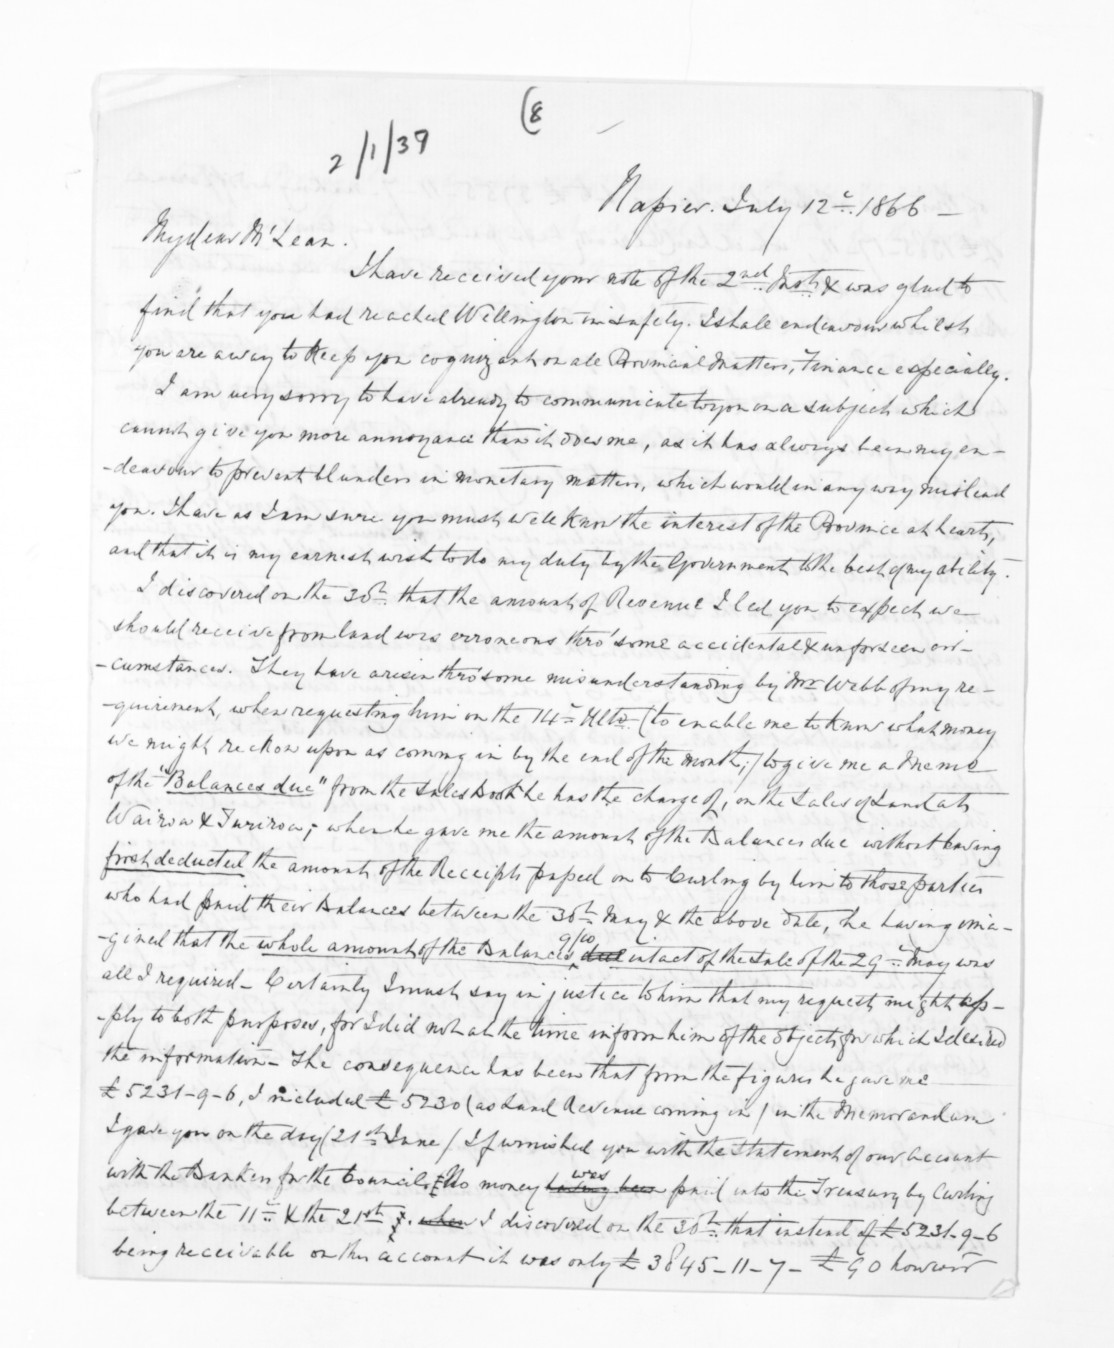 (8
2/1/39
Napier. July 12th. 1866 —
My dear McLean.
I have received your note of the 2nd Inst. & was glad to
find that you had reached Wellington in safety. I shall endeavour whilst
you are away to keep you cognizant on all Provincial Matters, Finance especially.
I am very sorry to have already to communicate to you on a subject which
cannot give you more annoyance than it does me, as it has always been my en-
-deavour to prevent blunders in monetary matters, which would in any way mislead
you. I have as I am sure you must well know the interest of the Province at heart,
and that it is my earnest wish to do my duty by the Government to the best of my ability.
I discovered on the 30th. that the amount of Revenue I led you to expect we
should receive from land was erroneous thro' some accidental & unforseen cir-
-cumstances. They have arisen thro' some misunderstanding by Mr Webb of my re-
-quirement, when requesting him on the 14th Ulto. (to enable me to know what money
we might reckon upon as coming in by the end of the month;) to give me a Memo
of the "Balances due" from the Sales Book he has the charge of, on the Sales of Land at
Wairoa & Turiroa; when he gave me the amount of the Balances due without having
first deducted the amount of the Receipts passed on to Curling by him to those parties
who had paid their Balances between the 30th May & the above date, he having ima-
-gined that the whole amount of the Balances due intact of the Sale of the 29th May was
all I required — Certainly I must say in justice to him that my request might ap-
-ply to both purposes, for I did not at the time inform him of the object for which I desired
the information — The consequence has been that from the figures he gave me
£5231-9-6, I included £5230 (as Land Revenue coming in) in the Memorandum
I gave you on the day (21st June) I furnished you with the Statement of our account
with the Bankers for the Council. No money having been was paid into the Treasury by Curling
between the 11th & the 21st. when I discovered on the 30th. that instead of £5231-9-6
being receivable on this account it was only £3845-11-7 — £90 however